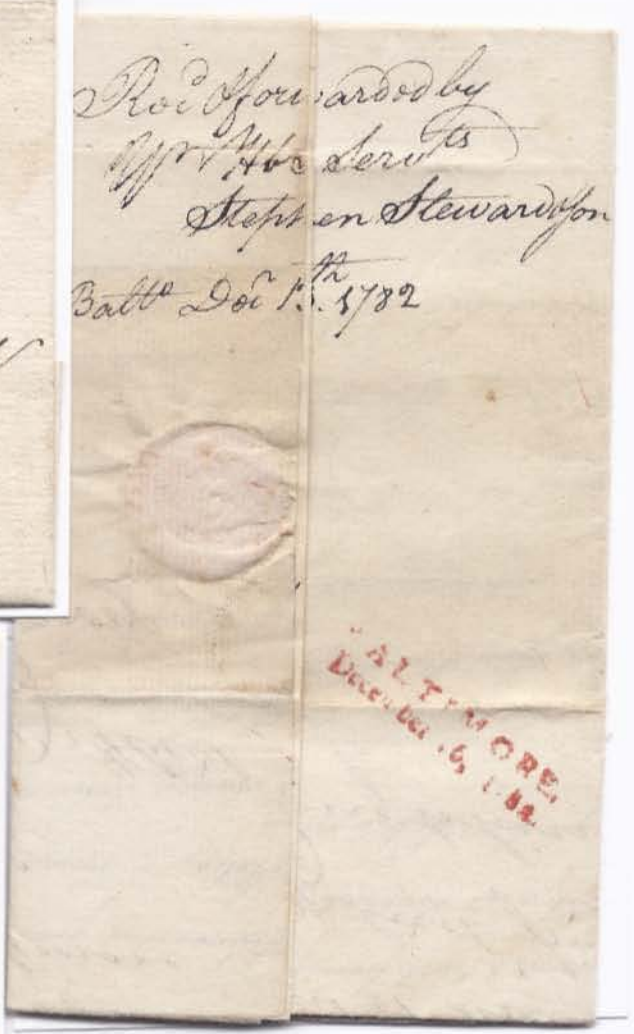 Rec'd & forwarded by
Yr Hble Servts
Stephen Stewardson
Balto Decr 15th 1782
BALTIMORE,
December 16, 1782